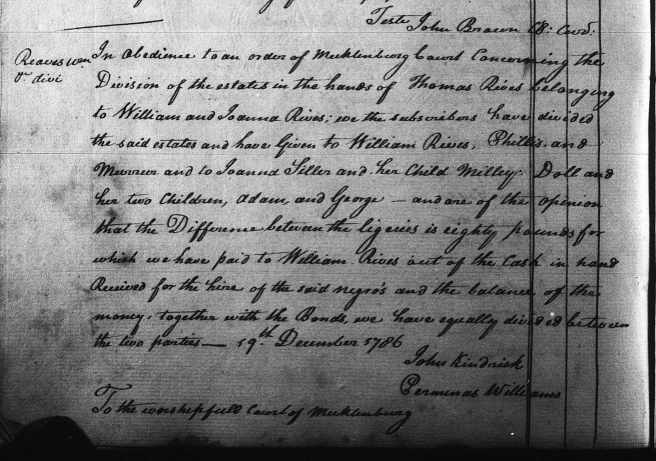 of
Teste John Brown Clk: Curd:
Reaves Wm
Dr. divi
In Obedience to an order of Mecklenburg Court Concerning the
Division of the estates in the hands of Thomas Rives belonging
to William and Joanna Rives; we the subscribers have divided
the said estates and have Given to William Rives, Phillis and
and to Joanna Siller and her Child Milley. Doll and
her two Children, Adam, and George — and are of the opinion
that the Difference between the is eighty pounds for
which we have paid to William Rives out of the Cash in hand
Received for the hire of the said negro's and the balance of the
money, together with the Bonds, we have equally divided between
the two parties — 19th December 1786
John Kindrick
Permenas Williams
To the worshipfull Court of Mecklenburg